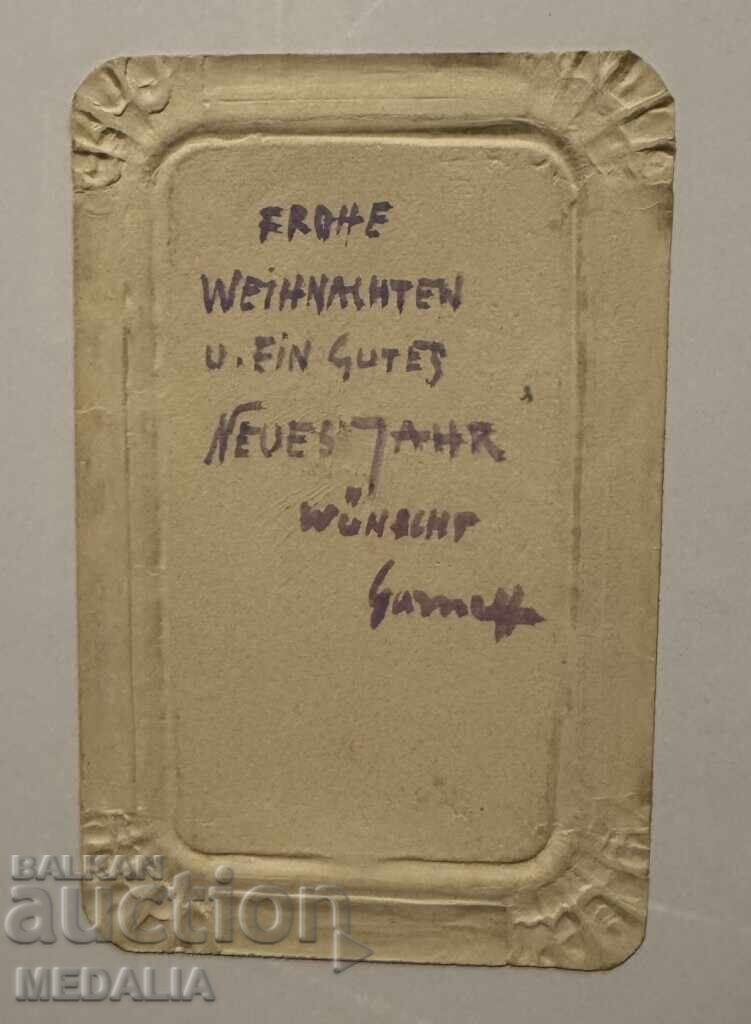 FROHE
WEIHNACHTEN
U. EIN GUTES
NEUES JAHR
WÜNSCHT
BALKAN
auction
MEDALIA